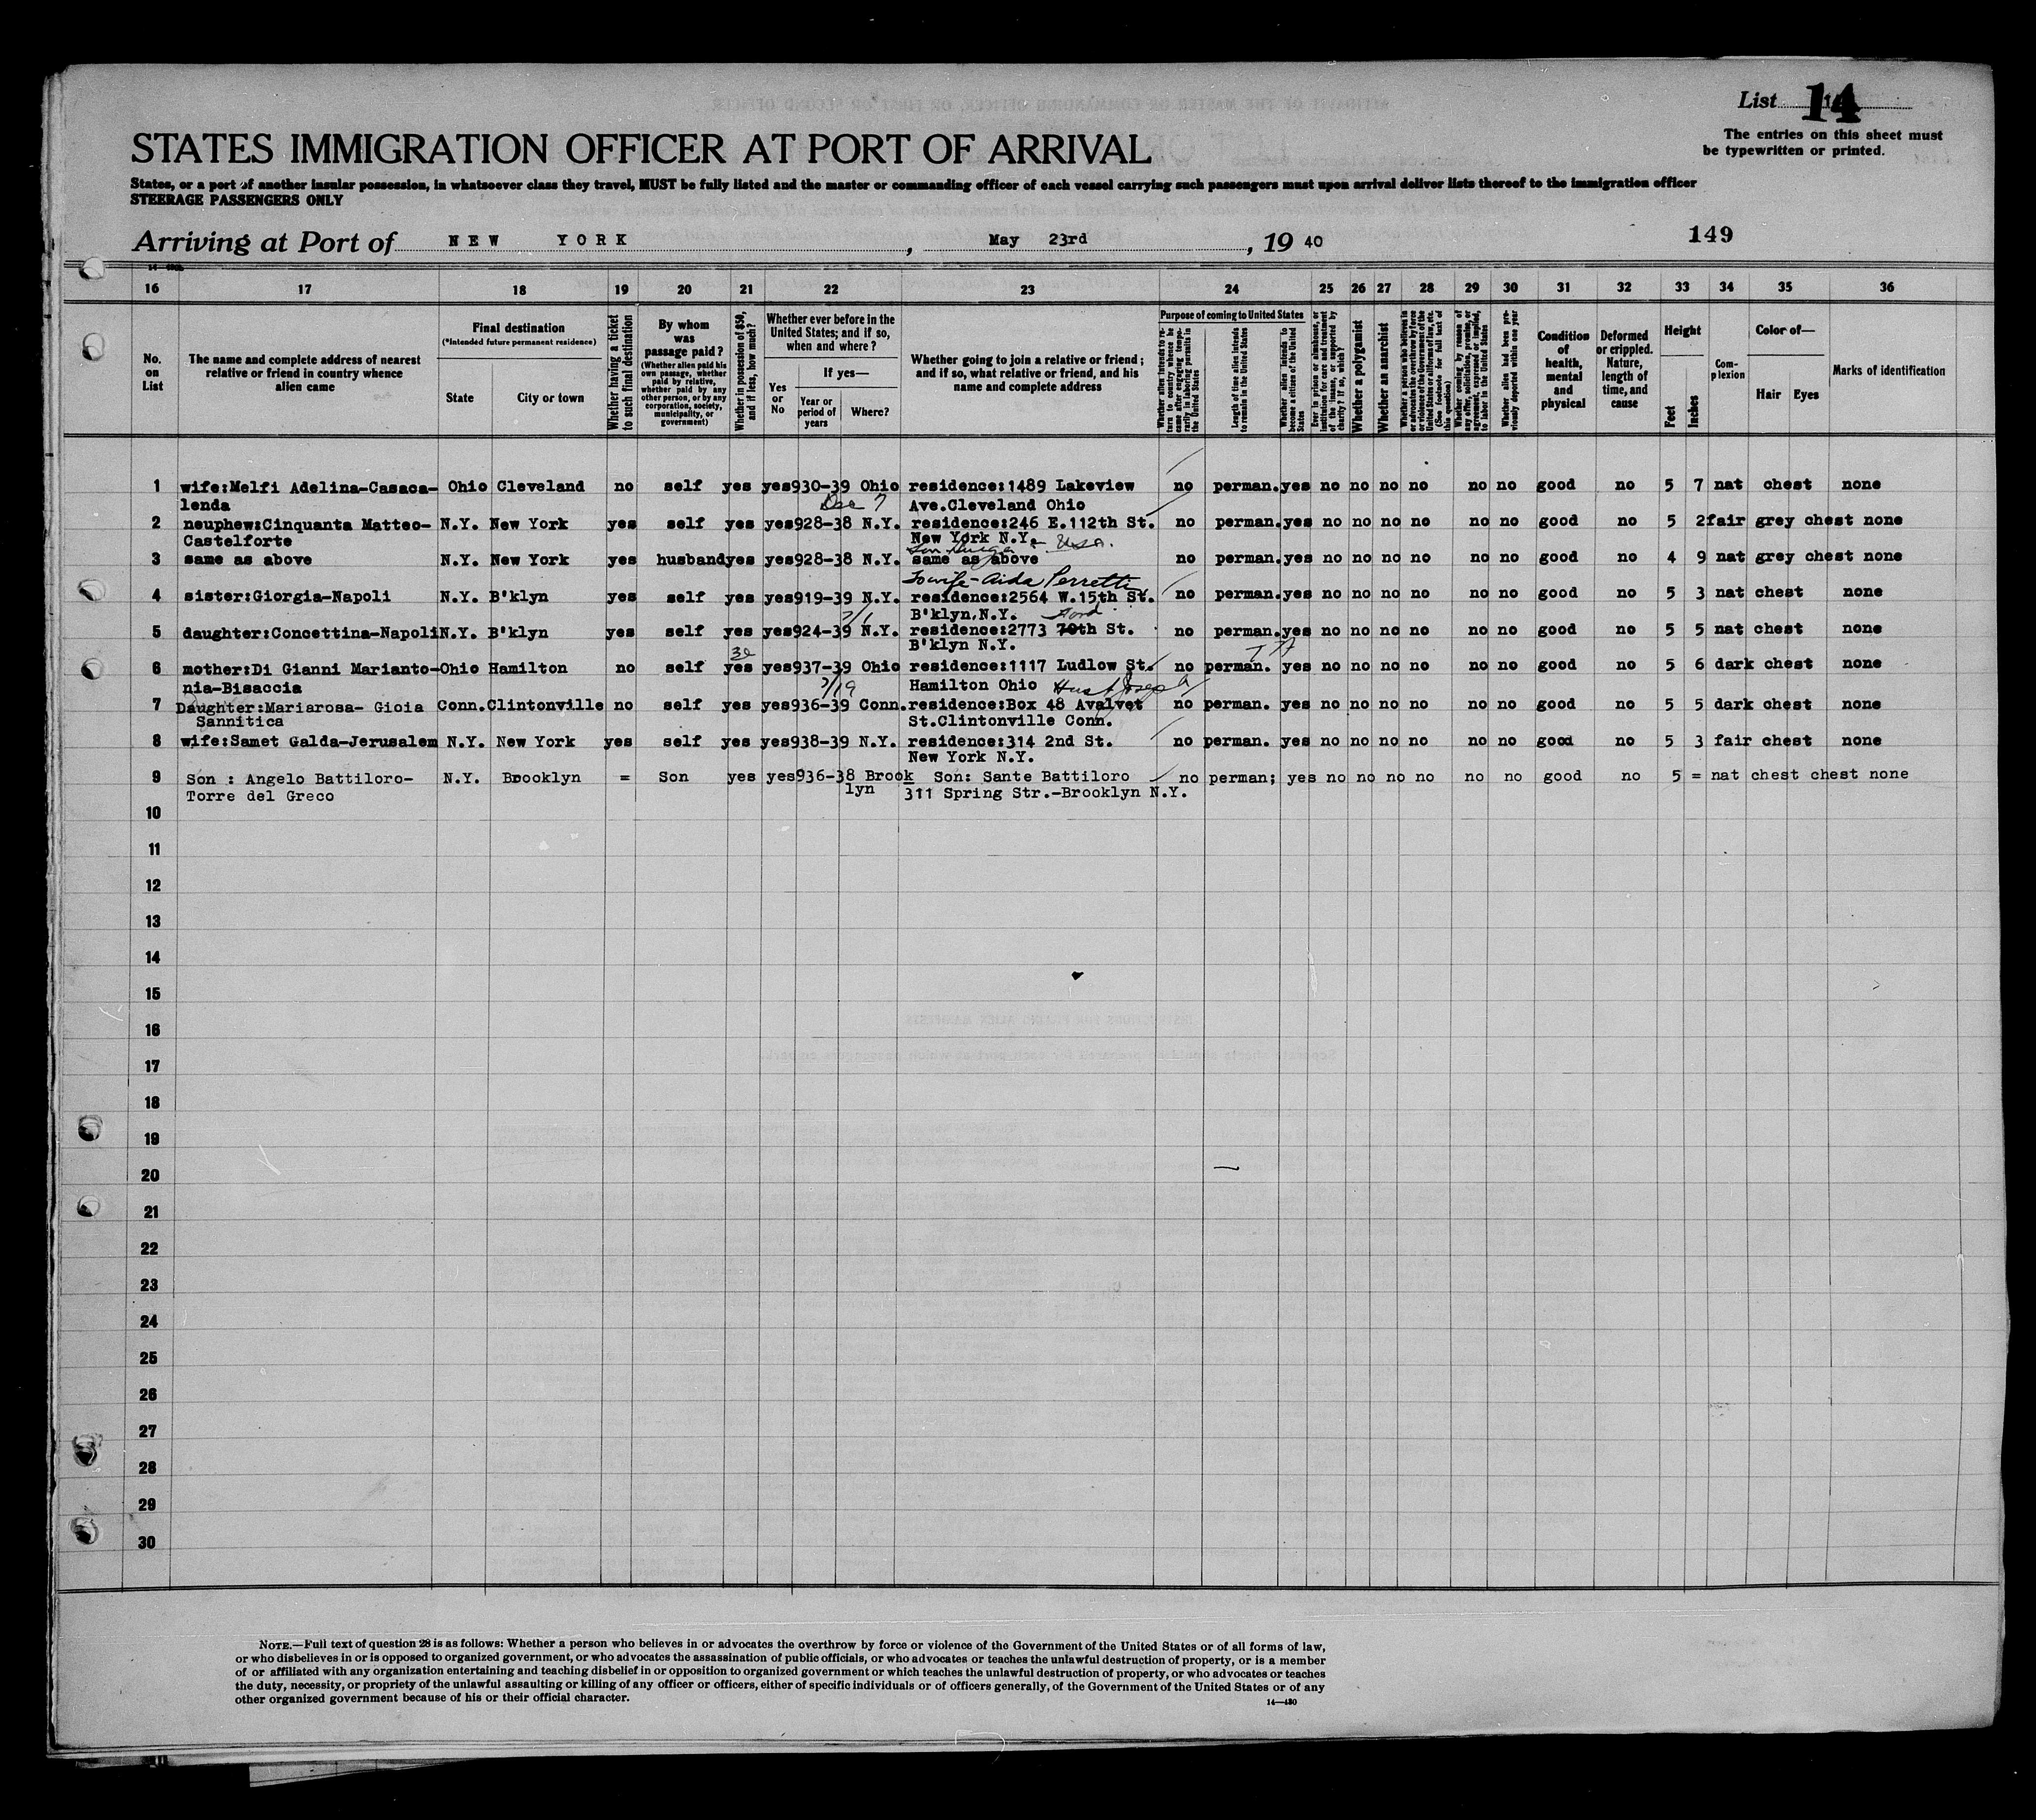 List 14
The entries on this sheet must
be typewritten or printed.
STATES IMMIGRATION OFFICER AT PORT OF ARRIVAL
States, or a port of another insular possession, in whatsoever class they travel, MUST be fully listed and the master or commanding officer of each vessel carrying such passengers must upon arrival deliver lists thereof to the immigration officer
STEERAGE PASSENGERS ONLY
Arriving at Port of NEW YORK, May 23rd, 19 40
149
16 17 18 19 20 21 22 23 24 25 26 27 28 29 30 31 32 33 34 35 36
No. on List
The name and complete address of nearest relative or friend in country whence alien came
Final destination (*Intended future permanent residence)
State
City or town
Whether having a ticket to such final destination
By whom was passage paid? (Whether alien paid his own passage, whether paid by relative, whether paid by any other person, or by any corporation, society, municipality, or government)
Whether in possession of $50, and if less, how much?
Whether ever before in the United States; and if so, when and where?
Yes or No
If yes—
Year or period of years
Where?
Whether going to join a relative or friend; and if so, what relative or friend, and his name and complete address
Purpose of coming to United States
Whether alien intends to return to country whence he came after engaging temporarily in laboring pursuits in the United States
Length of time alien intends to remain in the United States
Whether alien intends to become a citizen of the United States
Ever in prison or almshouse, or institution for care and treatment of the insane, or supported by charity? If so, which?
Whether a polygamist
Whether an anarchist
Whether a person who believes in or advocates the overthrow by force or violence of the Government of the United States or all forms of law, etc. (See footnote for full text of this question)
Whether coming by reason of any offer, solicitation, promise, or agreement, expressed or implied, to labor in the United States
Whether alien had been previously deported within one year
Condition of health, mental and physical
Deformed or crippled. Nature, length of time, and cause
Height
Feet
Inches
Complexion
Color of—
Hair
Eyes
Marks of identification
1 wife:Melfi Adelina-Casaca- Ohio Cleveland no self yes yes 930-39 Ohio residence:1489 Lakeview no perman. yes no no no no no no good no 5 7 nat chest none
lenda Dec 7 Ave.Cleveland Ohio
2 neuphew:Cinquanta Matteo- N.Y. New York yes self yes yes 928-38 N.Y. residence:246 E.112th St. no perman. yes no no no no no no good no 5 2 fair grey chest none
Castelforte New York N.Y. USA.
3 same as above N.Y. New York yes husband yes yes 928-38 N.Y. same as above no perman. yes no no no no no no good no 4 9 nat grey chest none
To wife - Aida Perretti
4 sister:Giorgia-Napoli N.Y. B'klyn yes self yes yes 919-39 N.Y. residence:2564 W.15th St. no perman. yes no no no no no no good no 5 3 nat chest none
B'klyn,N.Y.
5 daughter:Concettina-Napoli N.Y. B'klyn yes self yes yes 924-39 N.Y. residence:2773 70th St. no perman. yes no no no no no no good no 5 5 nat chest none
B'klyn N.Y.
6 mother:Di Gianni Marianto- Ohio Hamilton no self yes yes 937-39 Ohio residence:1117 Ludlow St. no perman. yes no no no no no no good no 5 6 dark chest none
nia-Bisaccia 7/19 Hamilton Ohio Husb Joseph
7 Daughter:Mariarosa- Gioia Conn. Clintonville no self yes yes 936-39 Conn. residence:Box 48 Avalvet no perman. yes no no no no no no good no 5 5 dark chest none
Sannitica St.Clintonville Conn.
8 wife:Samet Galda-Jerusalem N.Y. New York yes self yes yes 938-39 N.Y. residence:314 2nd St. no perman. yes no no no no no no good no 5 3 fair chest none
New York N.Y.
9 Son : Angelo Battiloro- N.Y. Brooklyn = Son yes yes 936-38 Brook Son: Sante Battiloro no perman; yes no no no no no no good no 5 = nat chest chest none
Torre del Greco lyn 311 Spring Str.-Brooklyn N.Y.
10
11
12
13
14
15
16
17
18
19
20
21
22
23
24
25
26
27
28
29
30
NOTE.—Full text of question 28 is as follows: Whether a person who believes in or advocates the overthrow by force or violence of the Government of the United States or of all forms of law,
or who disbelieves in or is opposed to organized government, or who advocates the assassination of public officials, or who advocates or teaches the unlawful destruction of property, or is a member
of or affiliated with any organization entertaining and teaching disbelief in or opposition to organized government or which teaches the unlawful destruction of property, or who advocates or teaches
the duty, necessity, or propriety of the unlawful assaulting or killing of any officer or officers, either of specific individuals or of officers generally, of the Government of the United States or of any
other organized government because of his or their official character.
14—430